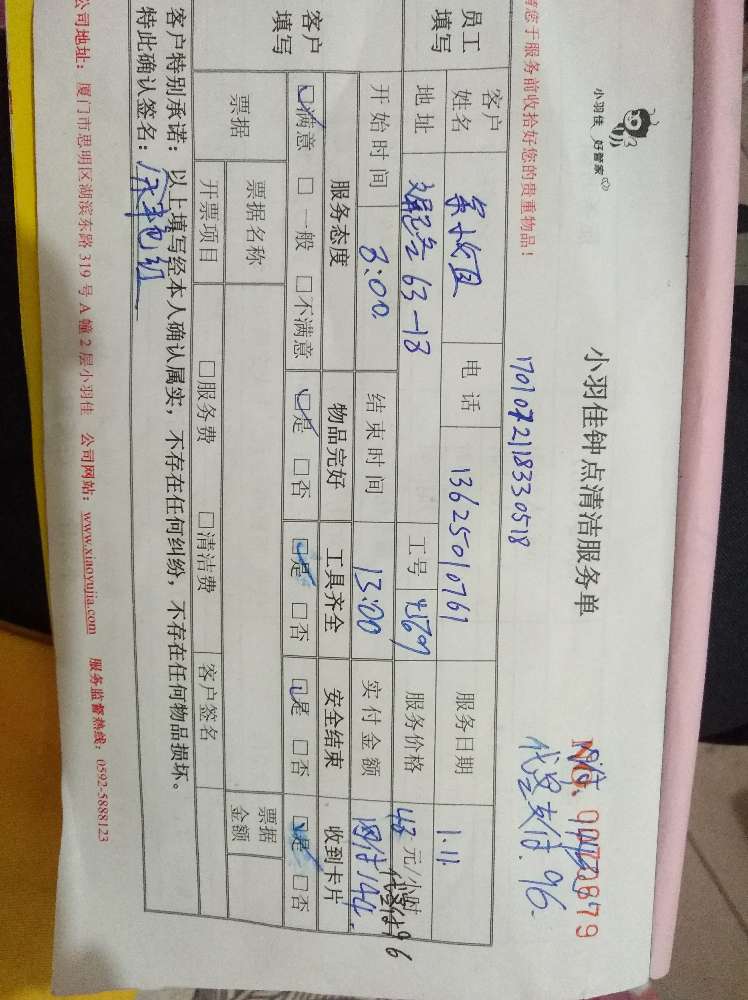 小羽佳 好管家
小羽佳钟点清洁服务单
NO.
代 支付.96.
170107211833 0518
请您于服务前收拾好您的贵重物品！
员工填写 客户姓名 电话 13625010761 服务日期 1.11
地址 63-18 工号 服务价格 48 元/小时
开始时间 8:00. 结束时间 13:00 实付金额 网付144. 付96
客户填写 服务态度 物品完好 工具齐全 安全结束 收到卡片
☑满意 □一般 □不满意 ☑是 □否 ☑是 □否 ☑是 □否 ☑是 □否
票据 票据名称 票据金额
开票项目 □服务费 □清洁费 客户签名
客户特别承诺：以上填写经本人确认属实，不存在任何纠纷，不存在任何物品损坏。
特此确认签名：
公司地址：厦门市思明区湖滨东路 319 号 A 幢 2 层小羽佳 公司网站：www.xiaoyujia.com 服务监督热线：0592-5888123